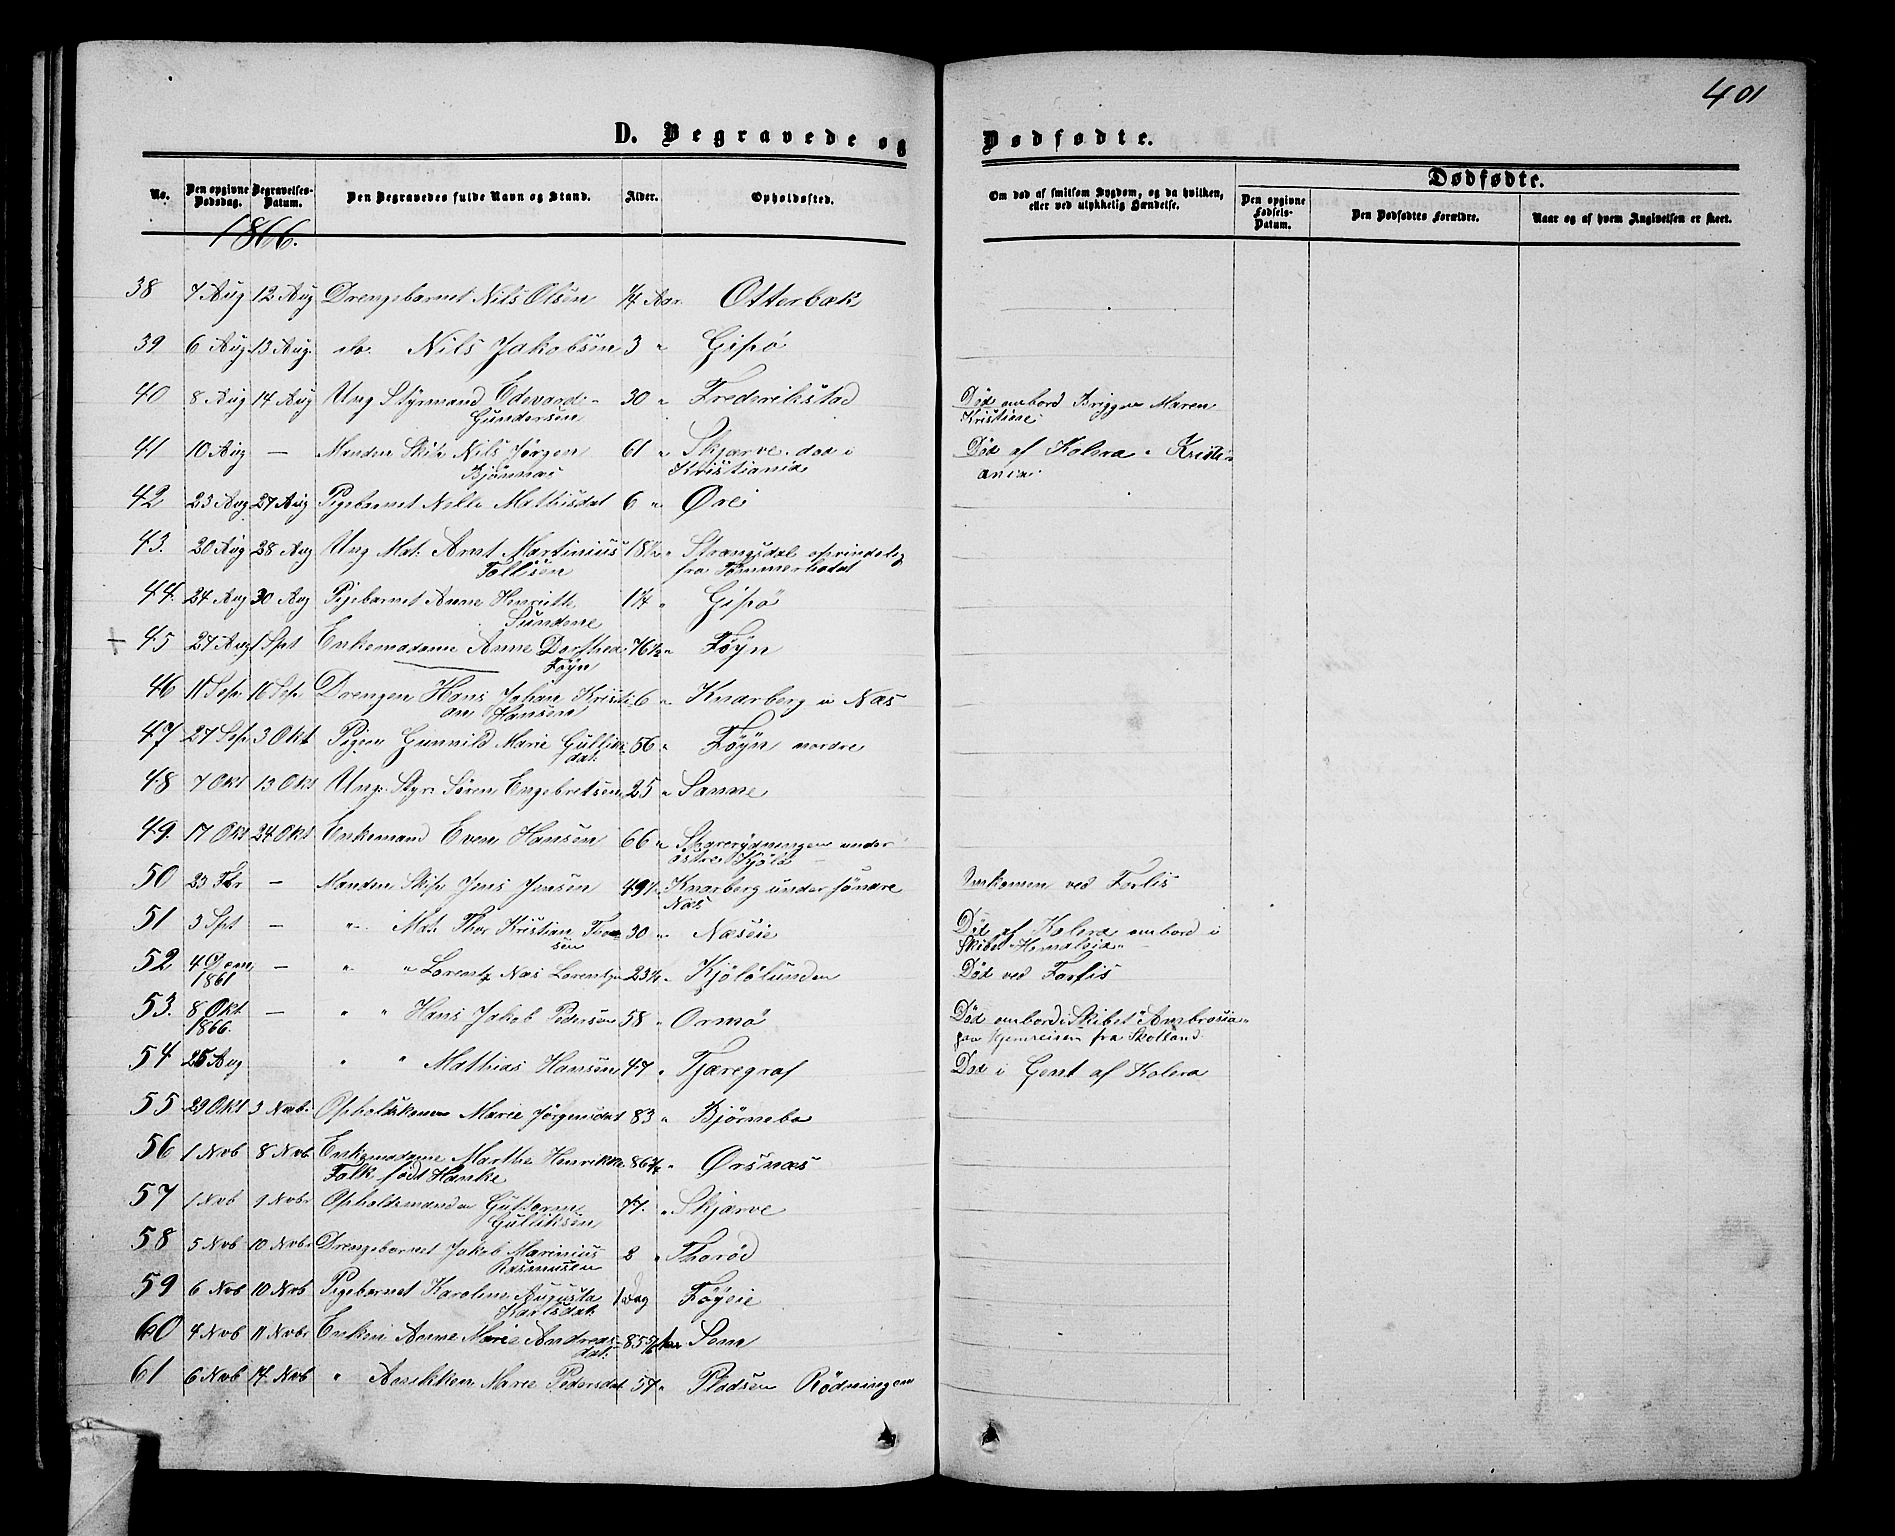 401
D. Begravede og Dødfødte.
No. Den opgivne Dødsdag. Begravelses-Datum. Den Begravedes fulde Navn og Stand. Alder. Opholdssted. Om død af smitsom Sygdom, og da hvilken, eller ved ulykkelig Hændelse. Dødfødte.
Den opgivne Fødsels-Datum. Den Dødfødtes Forældre. Naar og af hvem Angivelsen er skeet.
1866.
38 7 Aug 12 Aug Drengebarnet Nils Olsen 1/4 Aar Otterbæk
39 6 Aug 13 Aug. do. Nils Jakobsen 3 " Gipø
40 8 Aug 14 Aug Ung Styrmand Edvard Gundersen 30 " Frederikstad Død ombord Briggen Maren Kristiane
41 10 Aug — Manden Skib Nils Jørgen Bjønnæs 61 " Skjærve død i Kristiania Død af Kolera i Kristiania
42 23 Aug 27 Aug Pigebarnet Nelle Mathisdat 6 " Ørei
43. 20 Aug 28 Aug Ung Mat. Arnt Martinius Tollisen 18 1/2 " oprindelig fra
44. 24 Aug 30 Aug Pigebarnet Anne Henriette Sundene 1 1/4 " Gipø
45 27 Aug 1 Spt Enkemadame Anne Dorthea Føyn 76 1/2 " Føyn
46 11 Sep. 16 Sep. Drengen Hans Johan Kristian Hansen 6 " Knarberg i Næs
47 27 Sep. 3 Okt Pigen Gunnild Marie Gulliksdat. 56 " Føyn nordre
48 7 Okt 13 Okt Ung Styr. Søren Engebretsen 25 " Sanne
49. 17 Okt 24 Okt Enkemand Even Hansen 66 " under østre Kjølø
50 23 Fbr — Manden Skip Jens Jensen 49 1/2 Knarberg under søndre Næs Omkommen ved Forlis
51 3 Spt — " Mat. Thor Kristian 30 " Næseie Død af Kolera ombord i Skibet
52 4 1861 — " " Lorentz Næs Lorentzen 23 1/2 " Kjølølunden Død ved Forlis
53. 8 Okt. 1866. — " " Hans Jakob Pedersen 58 " Ormø Død ombord i Skibet "Ambrosia" paa Hjemreisen fra Skotland.
54 25 Aug " " Mathias Hansen 47 " Tjæregraf Død i Gent af Kolera
55 29 Okt 3 Novb. Opholdskonen Marie Jørgensdat 83 " Bjørnebo
56 1 Nvb 8 Nvb. Enkemadame Marthe Henrikke Falk født Hanke 86 " Ørsnæs
57 1 Nvb 9 Nvb. Opholdsmanden Guttorm Gulliksen 77. " Skjærve
58 5 Nvb 10 Nvb. Drengebarnet Jakob Marinius Rasmussen 2 " Thorød
59 6 Nvb 10 Nvb Pigebarnet Karoline Augusta Karlsdat. 1 Dag Føyeie
60 4 Nvb 11 Nvb. Enken Anne Marie Andreasdat. 85 Aar Sem
61 6 Nvb 14 Nvb " Annikken Marie Pedersdat 57 " Pladsen Rødningen